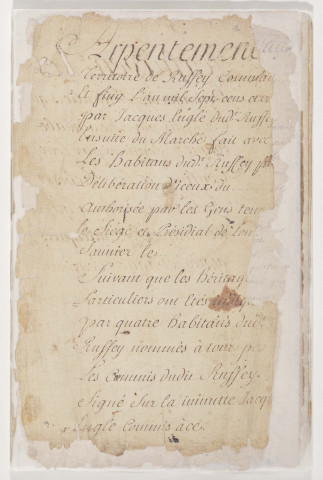 Arpentement
Territoire de Ruffey Commencé
et finy L'an mil Sept cens
par Jacques Lugle dud. Ruffey
Ensuitte du Marché fait avec
Les Habitans dud. Ruffey
Délibération d'iceux du
Authorisée par les Gens
le Siege et Présidial de
Saunier le
Suivant que les héritages
particuliers ont étés
par quatre habitans dud.
Ruffey nommés a tour
Les Commis dudit Ruffey.
Signé Sur la minutte Jacq
Lugle Commis à ce.